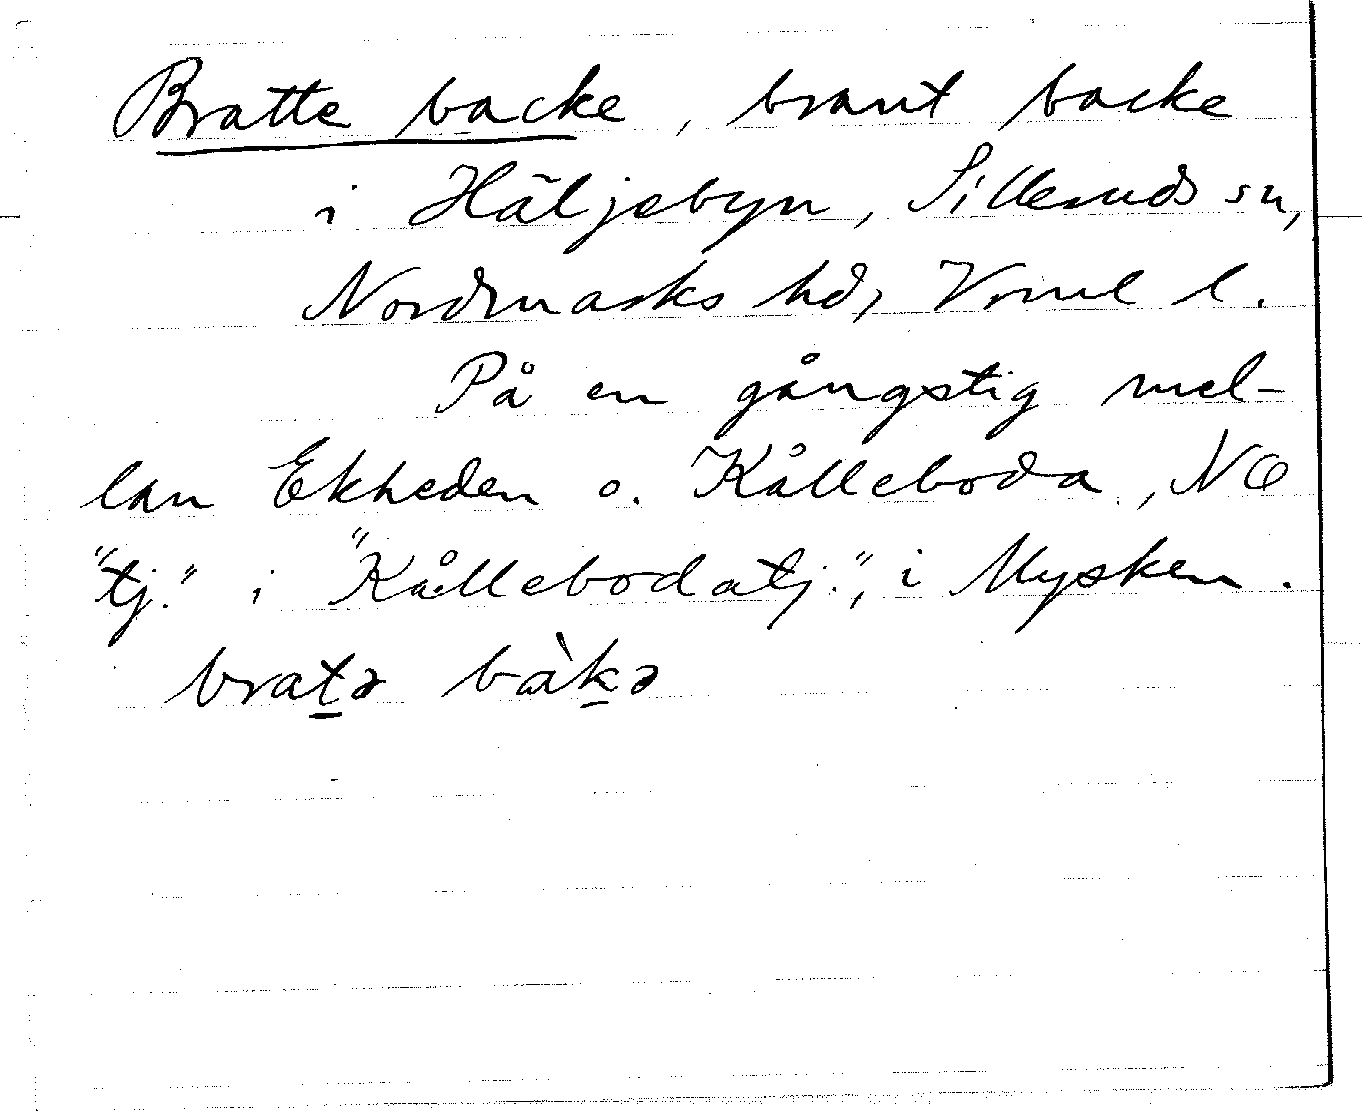 Bratte backe, brant backe
i Häljebyn, Silleruds sn,
Nordmarks hd, Vrml l.
På en gångstig mel-
lan Ekheden o. Kålleboda, NO
"tj." i "Kållebodatj.", i Mysken.
bratə bàkə